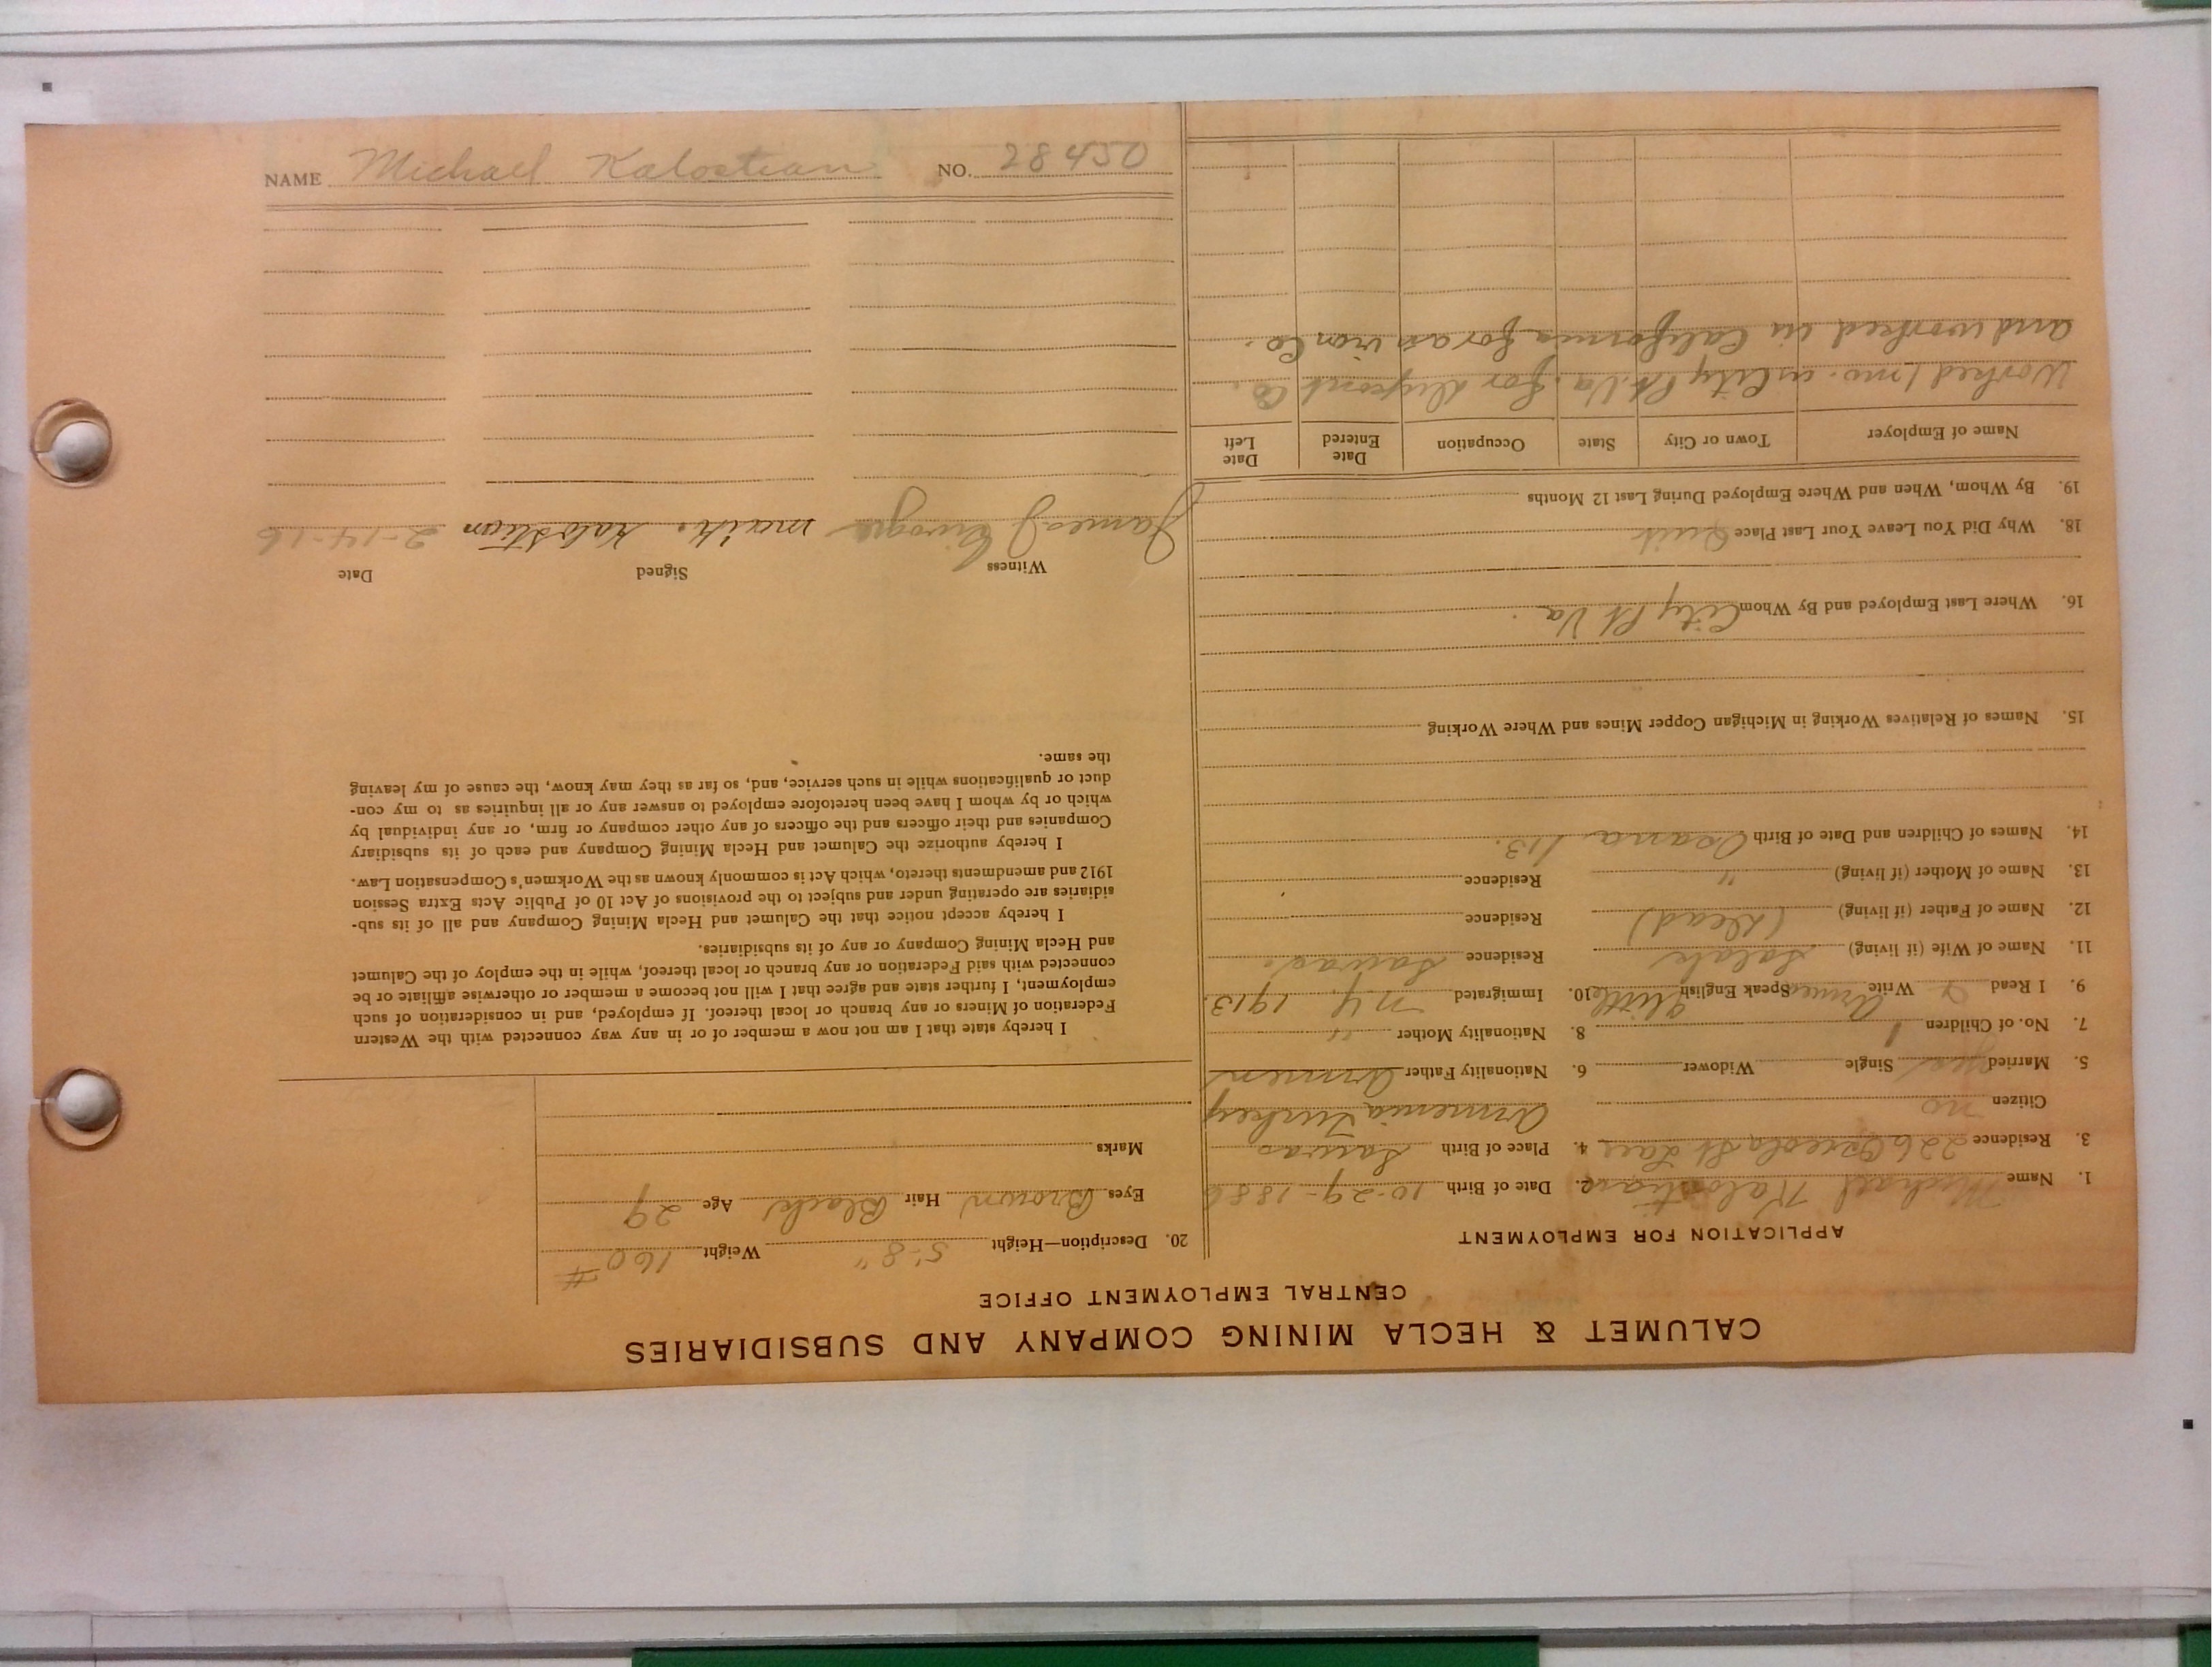 NAME Michael Kalostian NO. 28450
CALUMET & HECLA MINING COMPANY AND SUBSIDIARIES
CENTRAL EMPLOYMENT OFFICE
APPLICATION FOR EMPLOYMENT
1. Name Michael Kalostian 2. Date of Birth 10-29-1886
3. Residence 226 Osceola St Lau 4. Place of Birth Sawas
Citizen no Armenia Turkey
5. Married yes Single Widower 6. Nationality Father Armen
7. No. of Children 1 8. Nationality Mother "
9. I Read Write Armen Speak English little 10. Immigrated N.Y. 1913
11. Name of Wife (if living) Residence Sawas.
12. Name of Father (if living) (dead) Residence
13. Name of Mother (if living) " Residence
14. Names of Children and Date of Birth 1913.
15. Names of Relatives Working in Michigan Copper Mines and Where Working
16. Where Last Employed and By Whom City Pt Va.
18. Why Did You Leave Your Last Place Quit
19. By Whom, When and Where Employed During Last 12 Months
Name of Employer Town or City State Occupation Date Entered Date Left
Worked 1 mo. in City Pt. Va. for Dupont Co.
and worked in California for an iron Co.
20. Description—Height 5'-8" Weight 160#
Eyes Brown Hair Black Age 29
Marks
I hereby state that I am not now a member of or in any way connected with the Western
Federation of Miners or any branch or local thereof. If employed, and in consideration of such
employment, I further state and agree that I will not become a member or otherwise affiliate or be
connected with said Federation or any branch or local thereof, while in the employ of the Calumet
and Hecla Mining Company or any of its subsidiaries.
I hereby accept notice that the Calumet and Hecla Mining Company and all of its sub-
sidiaries are operating under and subject to the provisions of Act 10 of Public Acts Extra Session
1912 and amendments thereto, which Act is commonly known as the Workmen's Compensation Law.
I hereby authorize the Calumet and Hecla Mining Company and each of its subsidiary
Companies and their officers and the officers of any other company or firm, or any individual by
which or by whom I have been heretofore employed to answer any or all inquiries as to my con-
duct or qualifications while in such service, and, so far as they may know, the cause of my leaving
the same.
Witness Signed Date
James J maik. kalostian 2-14-16